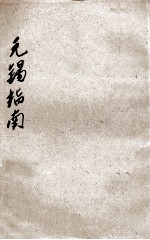 无锡指南